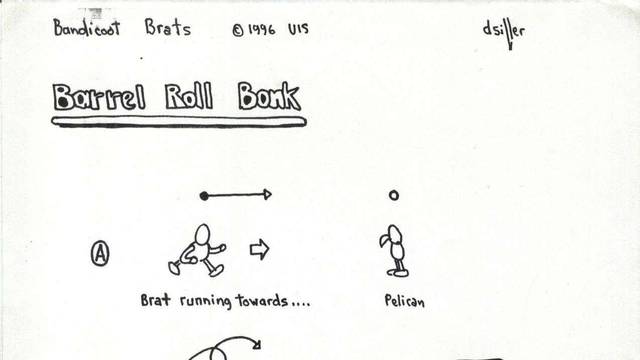 Bandicoot Brats © 1996 UIS dsiller
Barrel Roll Bonk
A
Brat running towards.... Pelican